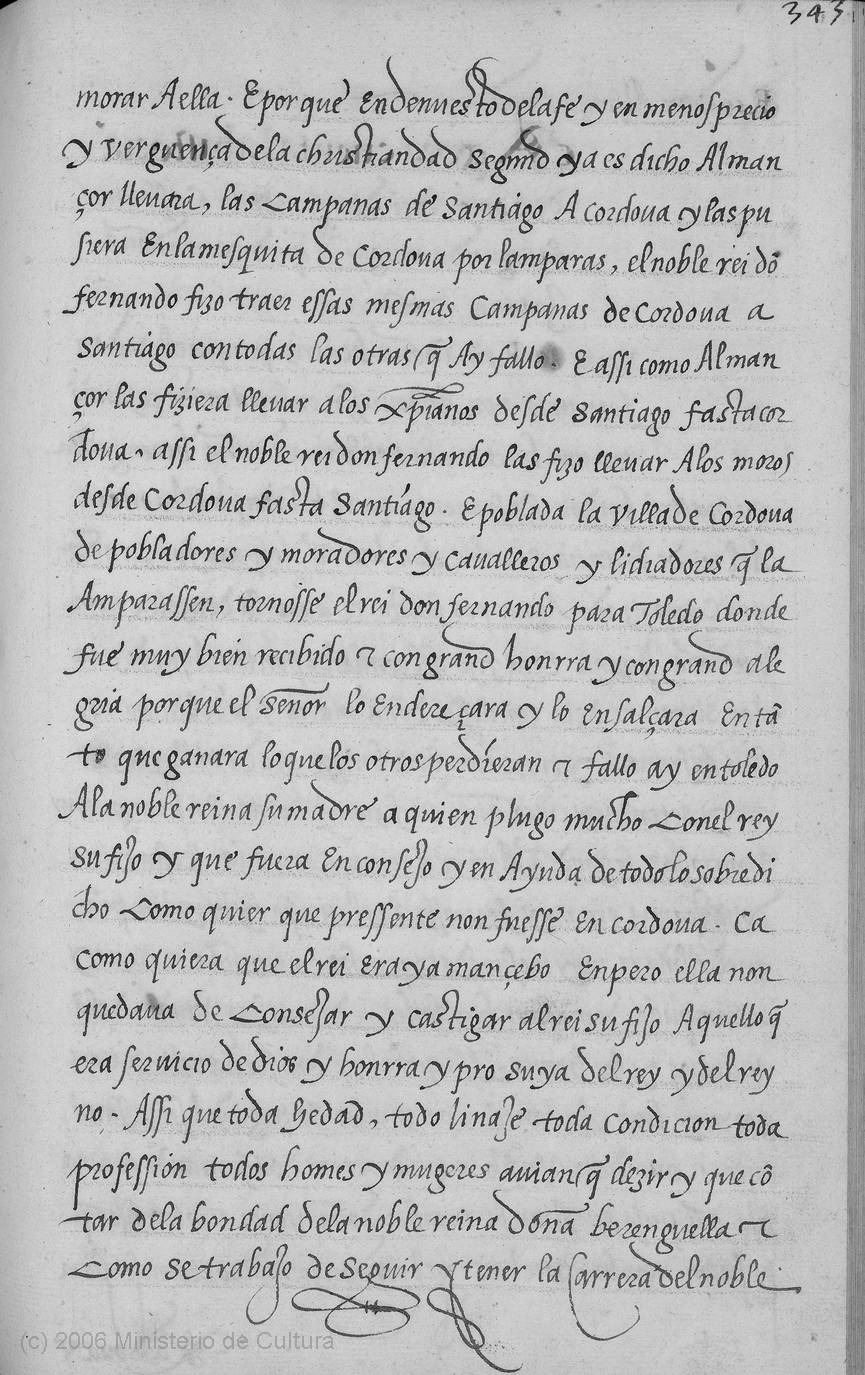 343
morar Aella. E porque En denuesto dela fe y en menosprecio
y verguença dela christiandad Segund ya es dicho Alman
çor llevara, las Campanas de Santiago A cordova y las pu
siera En la mesquita de Cordova por lamparas, el noble rei dõ
fernando fizo traer essas mesmas Campanas de Cordova a
Santiago con todas las otras q̃ Ay fallo. E assi como Alman
çor las fiziera llevar a los xp̃ianos desde Santiago fasta cor
dova. assi el noble rei don fernando las fizo llevar A los moros
desde Cordova fasta Santiago. E poblada la villa de Cordova
de pobladores y moradores y cavalleros y lidiadores q̃ la
Amparassen, tornosse el rei don fernando para Toledo donde
fue muy bien recibido & con grand honrra y con grand ale
gria porque el señor lo Endereçara y lo Ensalçara En tã
to que ganara lo que los otros perdieran & fallo ay en toledo
A la noble reina su madre a quien plugo mucho Con el rey
su fijo y que fuera En consejo y en Ayuda de todo lo sobredi
cho Como quier que pressente non fuesse En cordova. Ca
Como quiera que el rei Era ya mançebo Enpero ella non
quedava de Consejar y castigar al rei su fijo Aquello q̃
era servicio de dios y honrra y pro suya del rey y del rey
no. Assi que toda hedad, todo linaje toda Condicion toda
profession todos homes y mugeres avian q̃ dezir y que cõ
tar dela bondad dela noble reina doña berenguella &
Como se trabajo de Seguir y tener la Carrera del noble
(c) 2006 Ministerio de Cultura